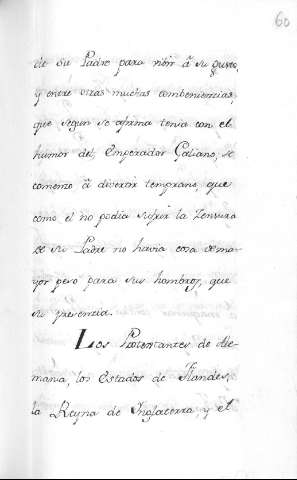 60
de su Padre para vivir â su gusto,
y entre otras muchas combeniencias,
que segun se afirma tenia con el
humor del Emperador Galieno, se
comenso â divertir temprano, que
como el no podia sufrir la Zensura
de su Padre no havia cosa de ma
yor peso para sus hombros, que
su presencia.
Los Protestantes de Ale-
mania, los Estados de Flandes,
la Reyna de Inglaterra, y el